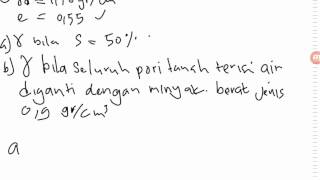 e = 0,55 ✓
a) γ bila S = 50%.
b) γ bila seluruh pori tanah terisi air
diganti dengan minyak. berat jenis
0,9 gr/cm³
a